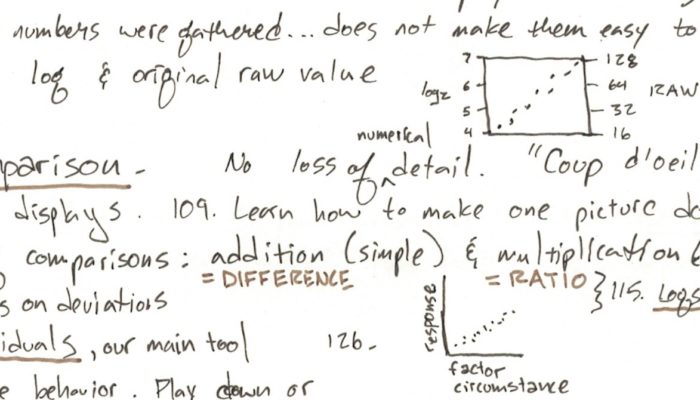 numbers were gathered... does not make them easy to
log & original raw value
log2 7 6 5 4
128 64 32 16 RAW
parison - No loss of numerical detail. "Coup d'oeil
displays. 109. Learn how to make one picture do
comparisons: addition (simple) & multiplication
= DIFFERENCE = RATIO } 115. Logs
s on deviations
iduals, our main tool 126.
response
factor
circumstance
e behavior. Play down or